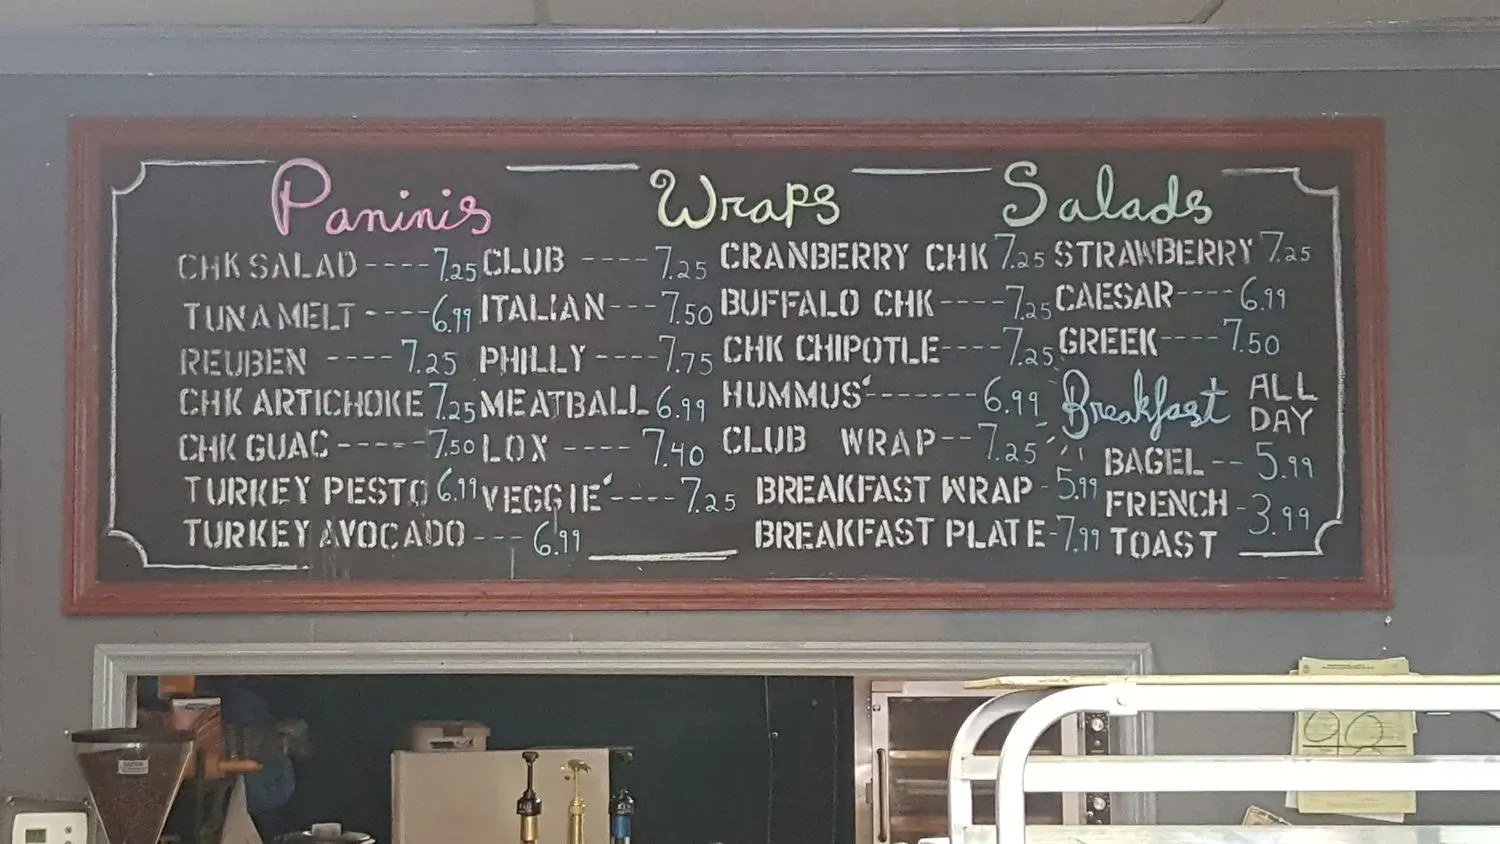 Paninis
CHK SALAD ---- 7.25
TUNA MELT ---- 6.99
REUBEN ---- 7.25
CHK ARTICHOKE 7.25
CHK GUAC ----- 7.50
TURKEY PESTO 6.99
TURKEY AVOCADO --- 6.99
CLUB ---- 7.25
ITALIAN --- 7.50
PHILLY ---- 7.75
MEATBALL 6.99
LOX ---- 7.40
VEGGIE' ---- 7.25
Wraps
CRANBERRY CHK 7.25
BUFFALO CHK ---- 7.25
CHK CHIPOTLE ---- 7.25
HUMMUS' ------- 6.99
CLUB WRAP -- 7.25
BREAKFAST WRAP - 5.99
BREAKFAST PLATE - 7.99
Salads
STRAWBERRY 7.25
CAESAR ---- 6.99
GREEK ---- 7.50
Breakfast ALL DAY
BAGEL -- 5.99
FRENCH TOAST - 3.99
98